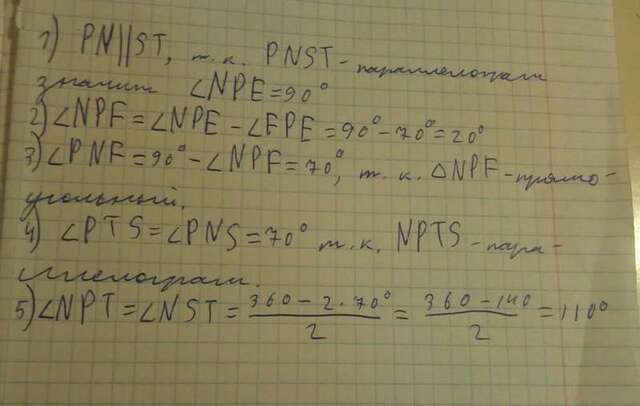 1) PN||ST, т.к. PNST - параллелограм
значит ∠NPE = 90°
2) ∠NPF = ∠NPE - ∠FPE = 90° - 70° = 20°
3) ∠PNF = 90° - ∠NPF = 70°, т.к. △NPF - прямо-
угольный.
4) ∠PTS = ∠PNS = 70° т.к. NPTS - пара-
ллелограм.
5) ∠NPT = ∠NST = (360 - 2·70°)/2 = (360 - 140)/2 = 110°